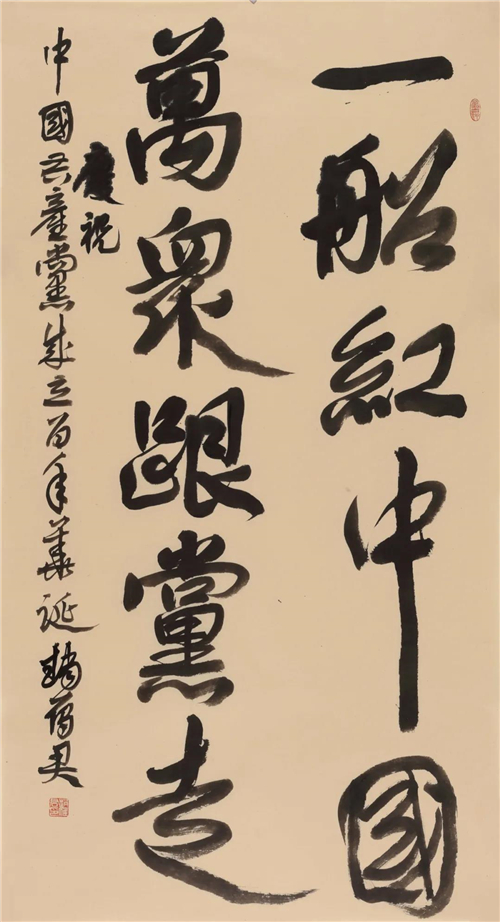 一船紅中國
萬眾跟黨走
慶祝
中國共產黨成立百年華誕